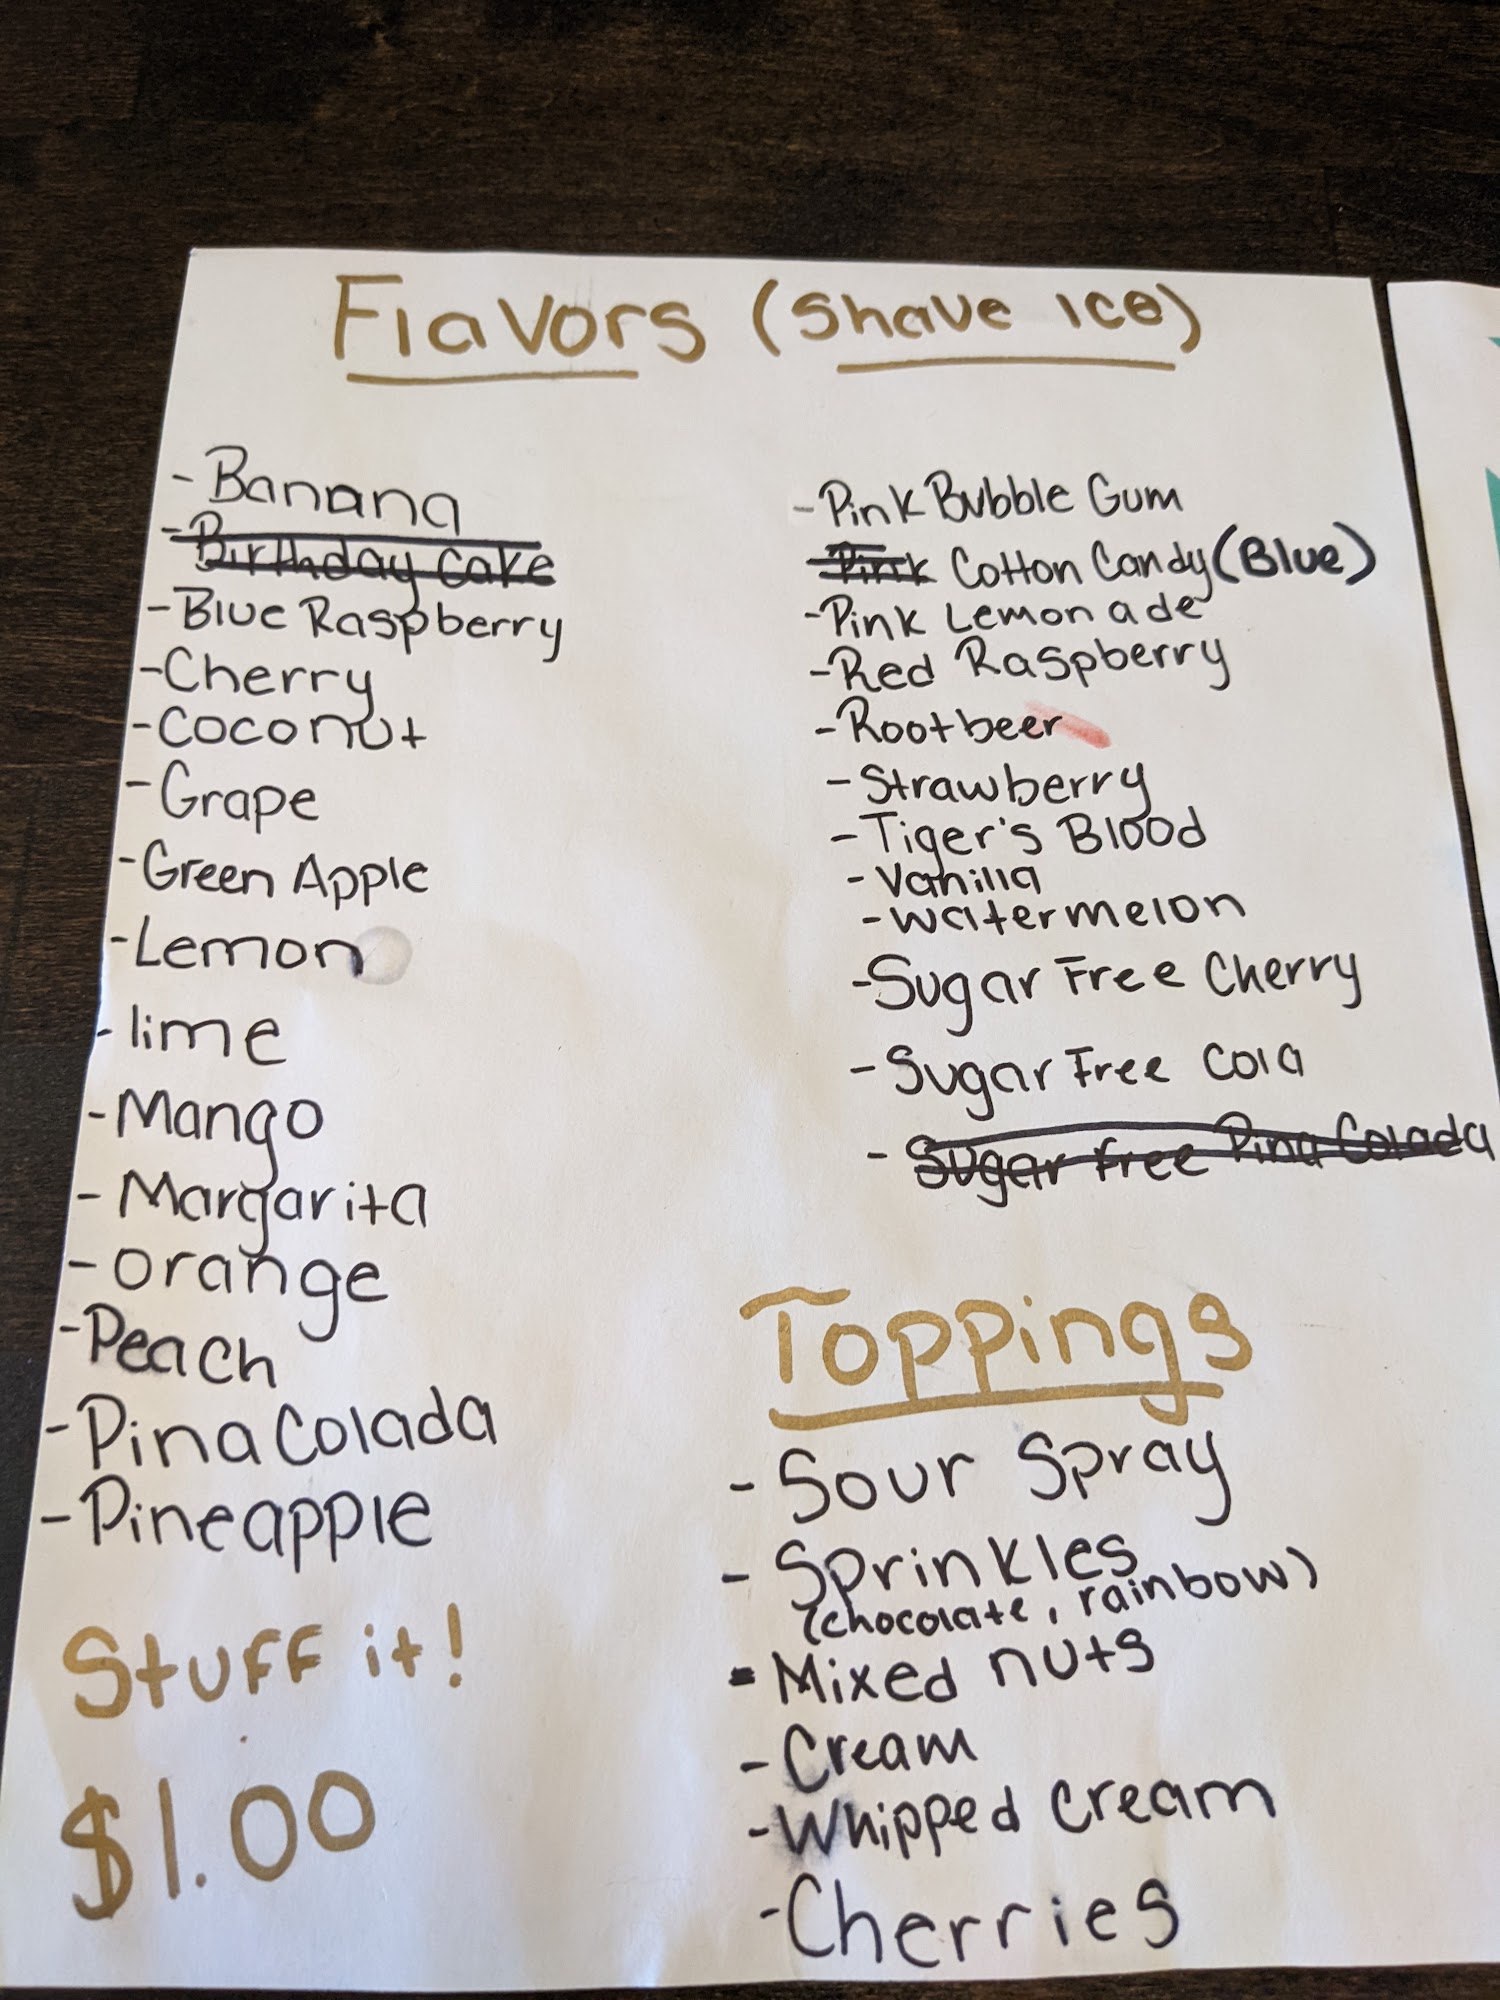 Flavors (Shave Ice)
- Banana
- Birthday Cake
- Blue Raspberry
- Cherry
- Coconut
- Grape
- Green Apple
- Lemon
- lime
- Mango
- Margarita
- orange
- Peach
- Pina Colada
- Pineapple
Stuff it!
$1.00
- Pink Bubble Gum
Pink Cotton Candy (Blue)
- Pink Lemonade
- Red Raspberry
- Rootbeer
- Strawberry
- Tiger's Blood
- Vanilla
- watermelon
- Sugar Free Cherry
- Sugar Free Cola
- Sugar Free Pina Colada
Toppings
- Sour Spray
- Sprinkles
(chocolate, rainbow)
- Mixed nuts
- Cream
- Whipped Cream
- Cherries